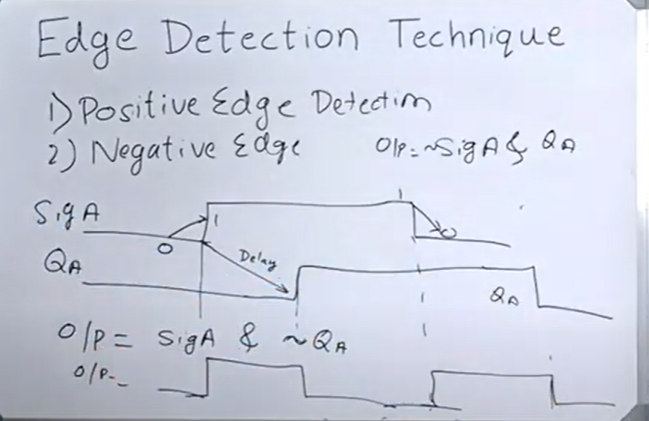 Edge Detection Technique
1) Positive Edge Detection
2) Negative Edge O/P = ~SigA & QA
SigA 0 1 1 0
QA Delay QA
O/P = SigA & ~QA
O/P-_